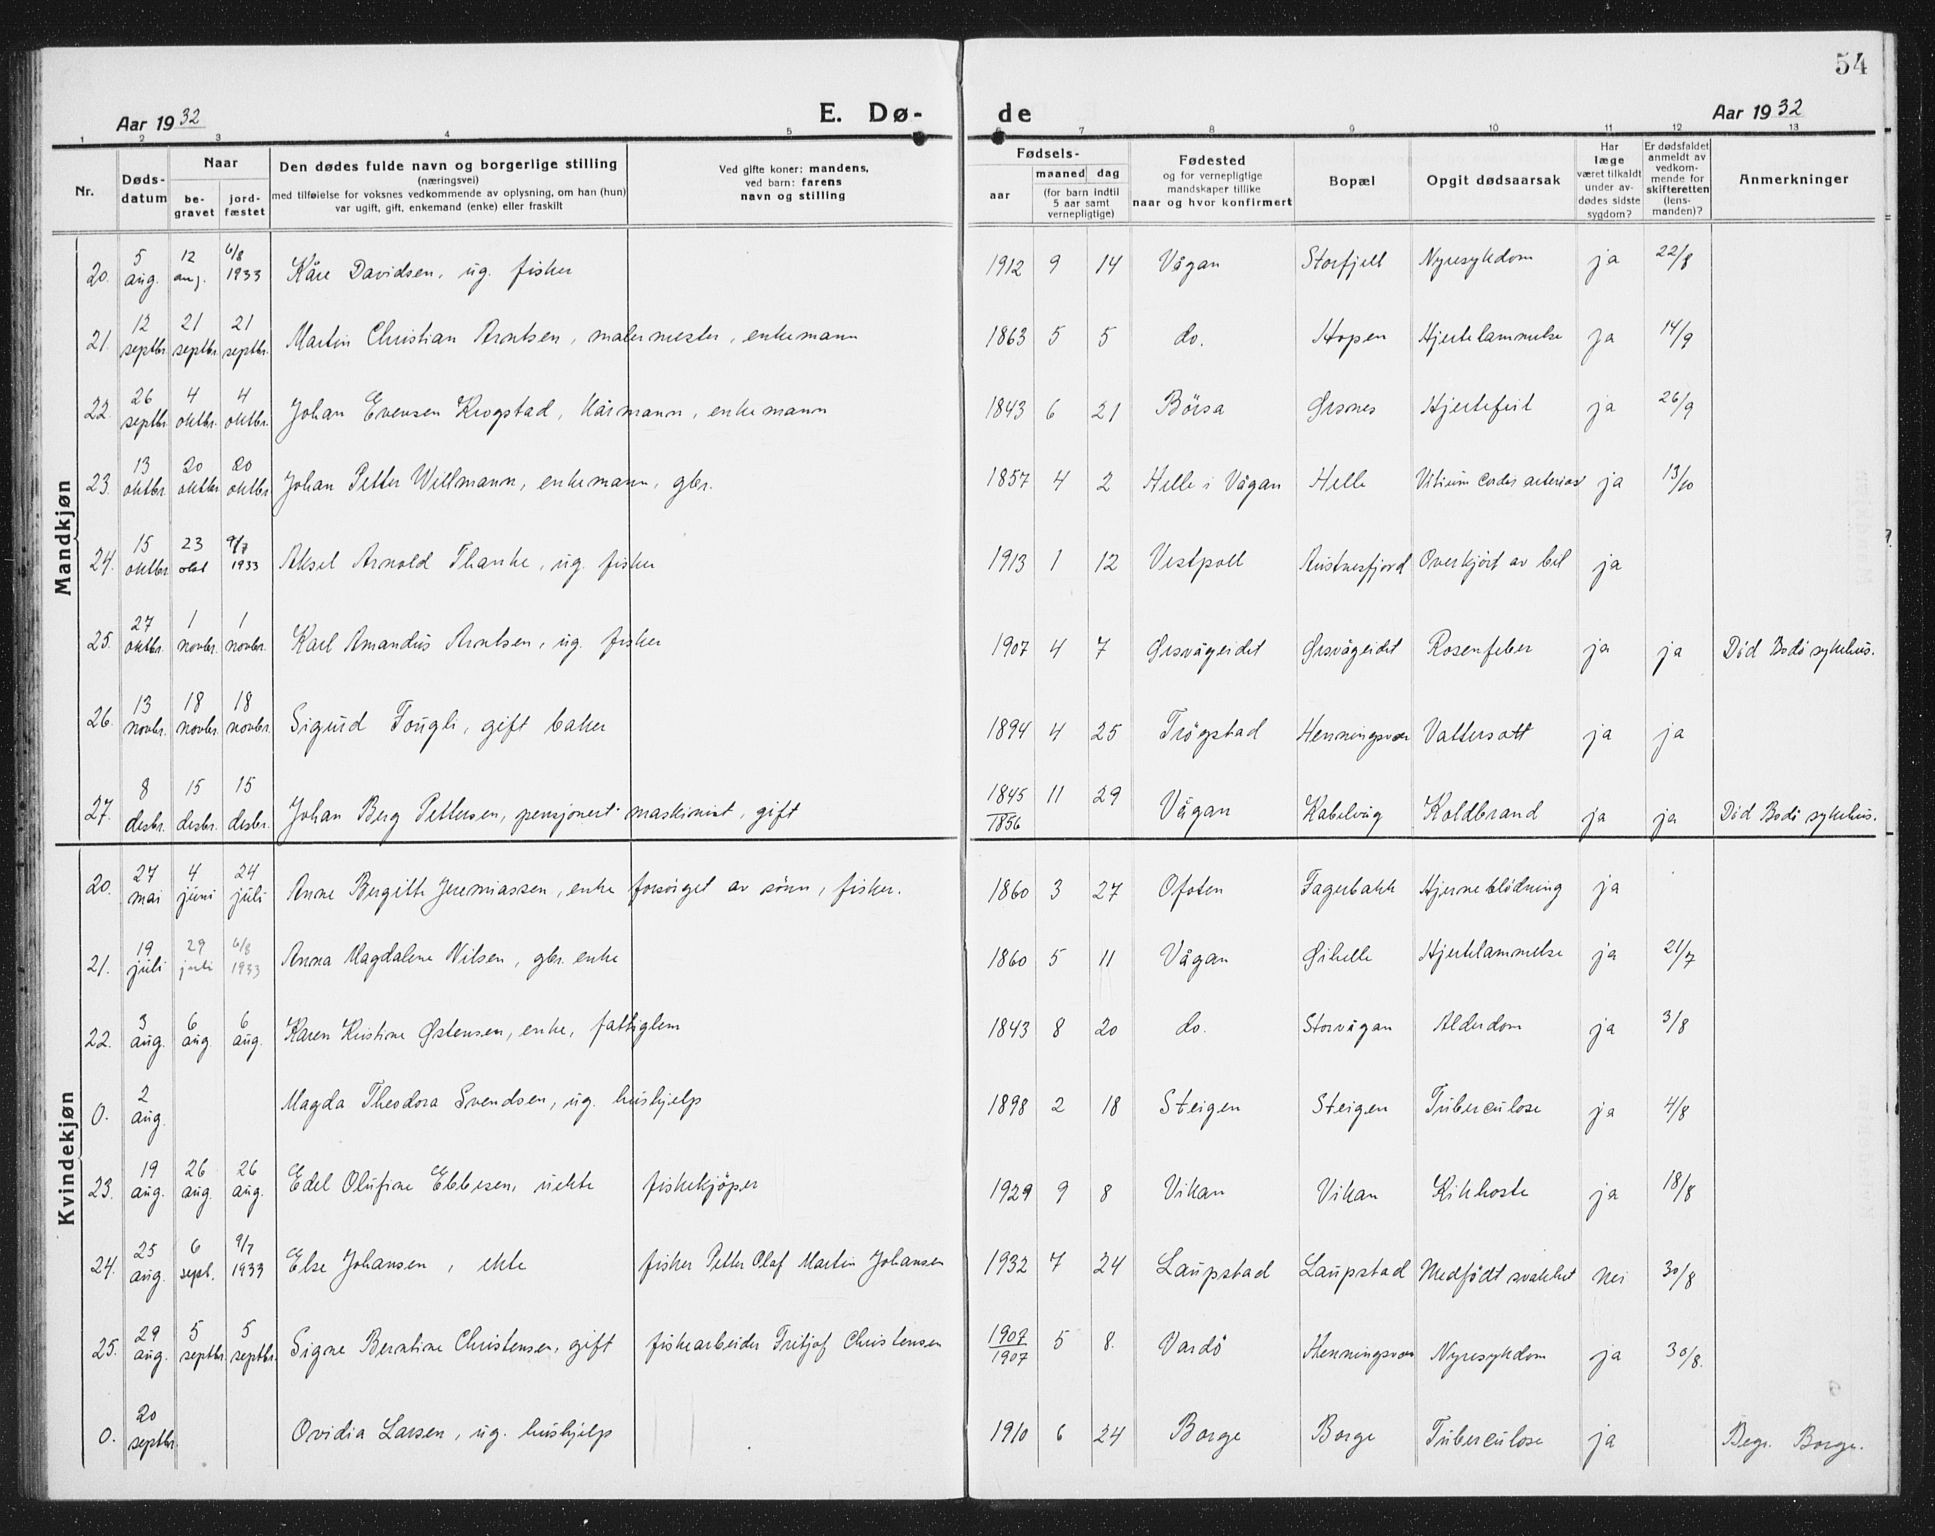 54
Aar 1932 E. Dø- de Aar 1932
1 2 3 4 5 6 7 8 9 10 11 12 13
Nr. Døds-datum Naar be-gravet jord-fæstet Den dødes fulde navn og borgerlige stilling (næringsvei) med tilføielse for voksnes vedkommende av oplysning, om han (hun) var ugift, gift, enkemand (enke) eller fraskilt Ved gifte koner: mandens, ved barn: farens navn og stilling Fødsels- aar maaned dag (for barn indtil 5 aar samt vernepligtige) Fødested og for vernepligtige mandskaper tillike naar og hvor konfirmert Bopæl Opgit dødsaarsak Har læge været tilkaldt under av-dødes sidste sygdom? Er dødsfaldet anmeldt av vedkom-mende for skifteretten (lens-manden)? Anmerkninger
Mandkjøn
20. 5 aug. 12 aug. 6/8 1933 Kåre Davidsen, ug. fisker 1912 9 14 Vågan Storfjell Nyresykdom ja 22/8
21. 12 septbr. 21 septbr. 21 septbr. Martin Christian Arntsen, malermester, enkemann 1863 5 5 do. Hopen Hjertelammelse ja 14/9
22. 26 septbr. 4 oktbr. 4 oktbr. Johan Evensen Krogstad, kårmann, enkemann 1843 6 21 Börsa Ørsnes Hjertefeil ja 26/9
23. 13 oktbr. 20 oktbr. 20 oktbr. Johan Petter Willmann, enkemann, gbr. 1857 4 2 Helle i Vågan Helle Vitium cordis ja 13/10
24. 15 oktbr. 23 okt 9/7 1933 Aksel Arnold Thanke, ug. fisker 1913 1 12 Vestpoll Austnesfjord Overkjört av bil ja
25. 27 oktbr. 1 novbr. 1 novbr. Karl Amandus Arntsen, ug. fisker 1907 4 7 Ørsvågeidet Ørsvågeidet Rosenfeber ja ja Död Bodö sykehus.
26. 13 novbr. 18 novbr. 18 novbr. Sigurd Fougli, gift baker 1894 4 25 Trögstad Henningsvær Vattersott ja ja
27. 8 desbr. 15 desbr. 15 desbr. Johan Berg Pettersen, pensjonert maskinist, gift 1845 1856 11 29 Vågan Kabelvåg Koldbrand ja ja Död Bodö sykehus.
Kvindekjøn
20. 27 mai 4 juni 24 juli Anne Bergitte Jeremiassen, enke forsörget av sönn, fisker. 1860 3 27 Ofoten Fagerbakk Hjerneblödning ja
21. 19 juli 29 juli 6/8 1933 Anna Magdalene Nilsen, gbr. enke 1860 5 11 Vågan Öihelle Hjertelammelse ja 21/7
22. 3 aug. 6 aug. 6 aug. Karen Kristine Østensen, enke, fattiglem 1843 8 20 do. Storvågan Alderdom ja 3/8
0. 2 aug. Magda Theodora Svendsen, ug. hushjelp 1898 2 18 Steigen Steigen Tuberculose ja 4/8
23. 19 aug. 26 aug. 26 aug. Edel Olufine Ebbesen, uekte fiskekjöper 1929 9 8 Vikan Vikan Kikhoste ja 18/8
24. 25 aug. 6 sept. 9/7 1933 Else Johansen, ekte fisker Petter Olaf Martin Johansen 1932 7 24 Laupstad Laupstad Medfödt svakhet nei 30/8
25. 29 aug. 5 septbr. 5 septbr. Signe Berntine Christensen, gift fiskearbeider Fritjof Christensen 1907 1907 5 8. Vardö Henningsvær Nyresykdom ja 30/8.
0. 20 septbr. Ovidia Larsen, ug. hushjelp 1910 6 24 Borge Borge Tuberculose ja Begr. Borge.